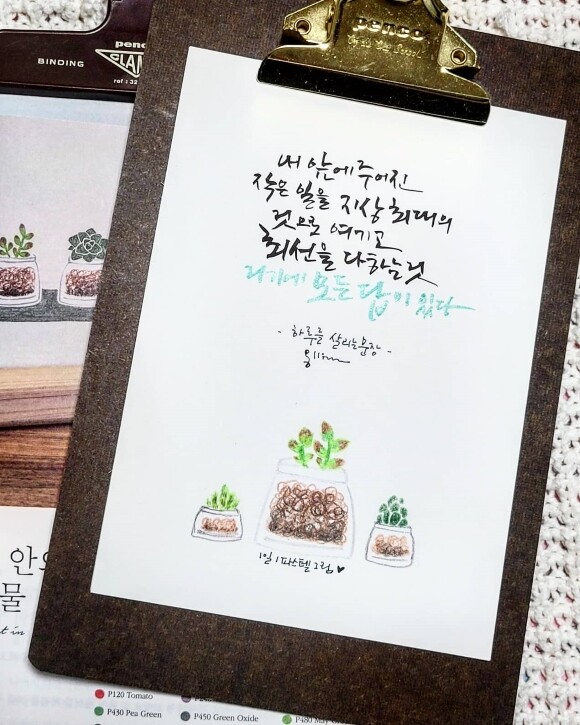 penco
BINDING
penco
내 앞에 주어진
작은 일을 지상 최대의
것으로 여기고
최선을 다하는 것
거기에 모든 답이 있다
- 하루를 살리는 문장 -
1일 1 파스텔 그림 ♥
안
물
P120 Tomato
P430 Pea Green
P450 Green Oxide
P480 May